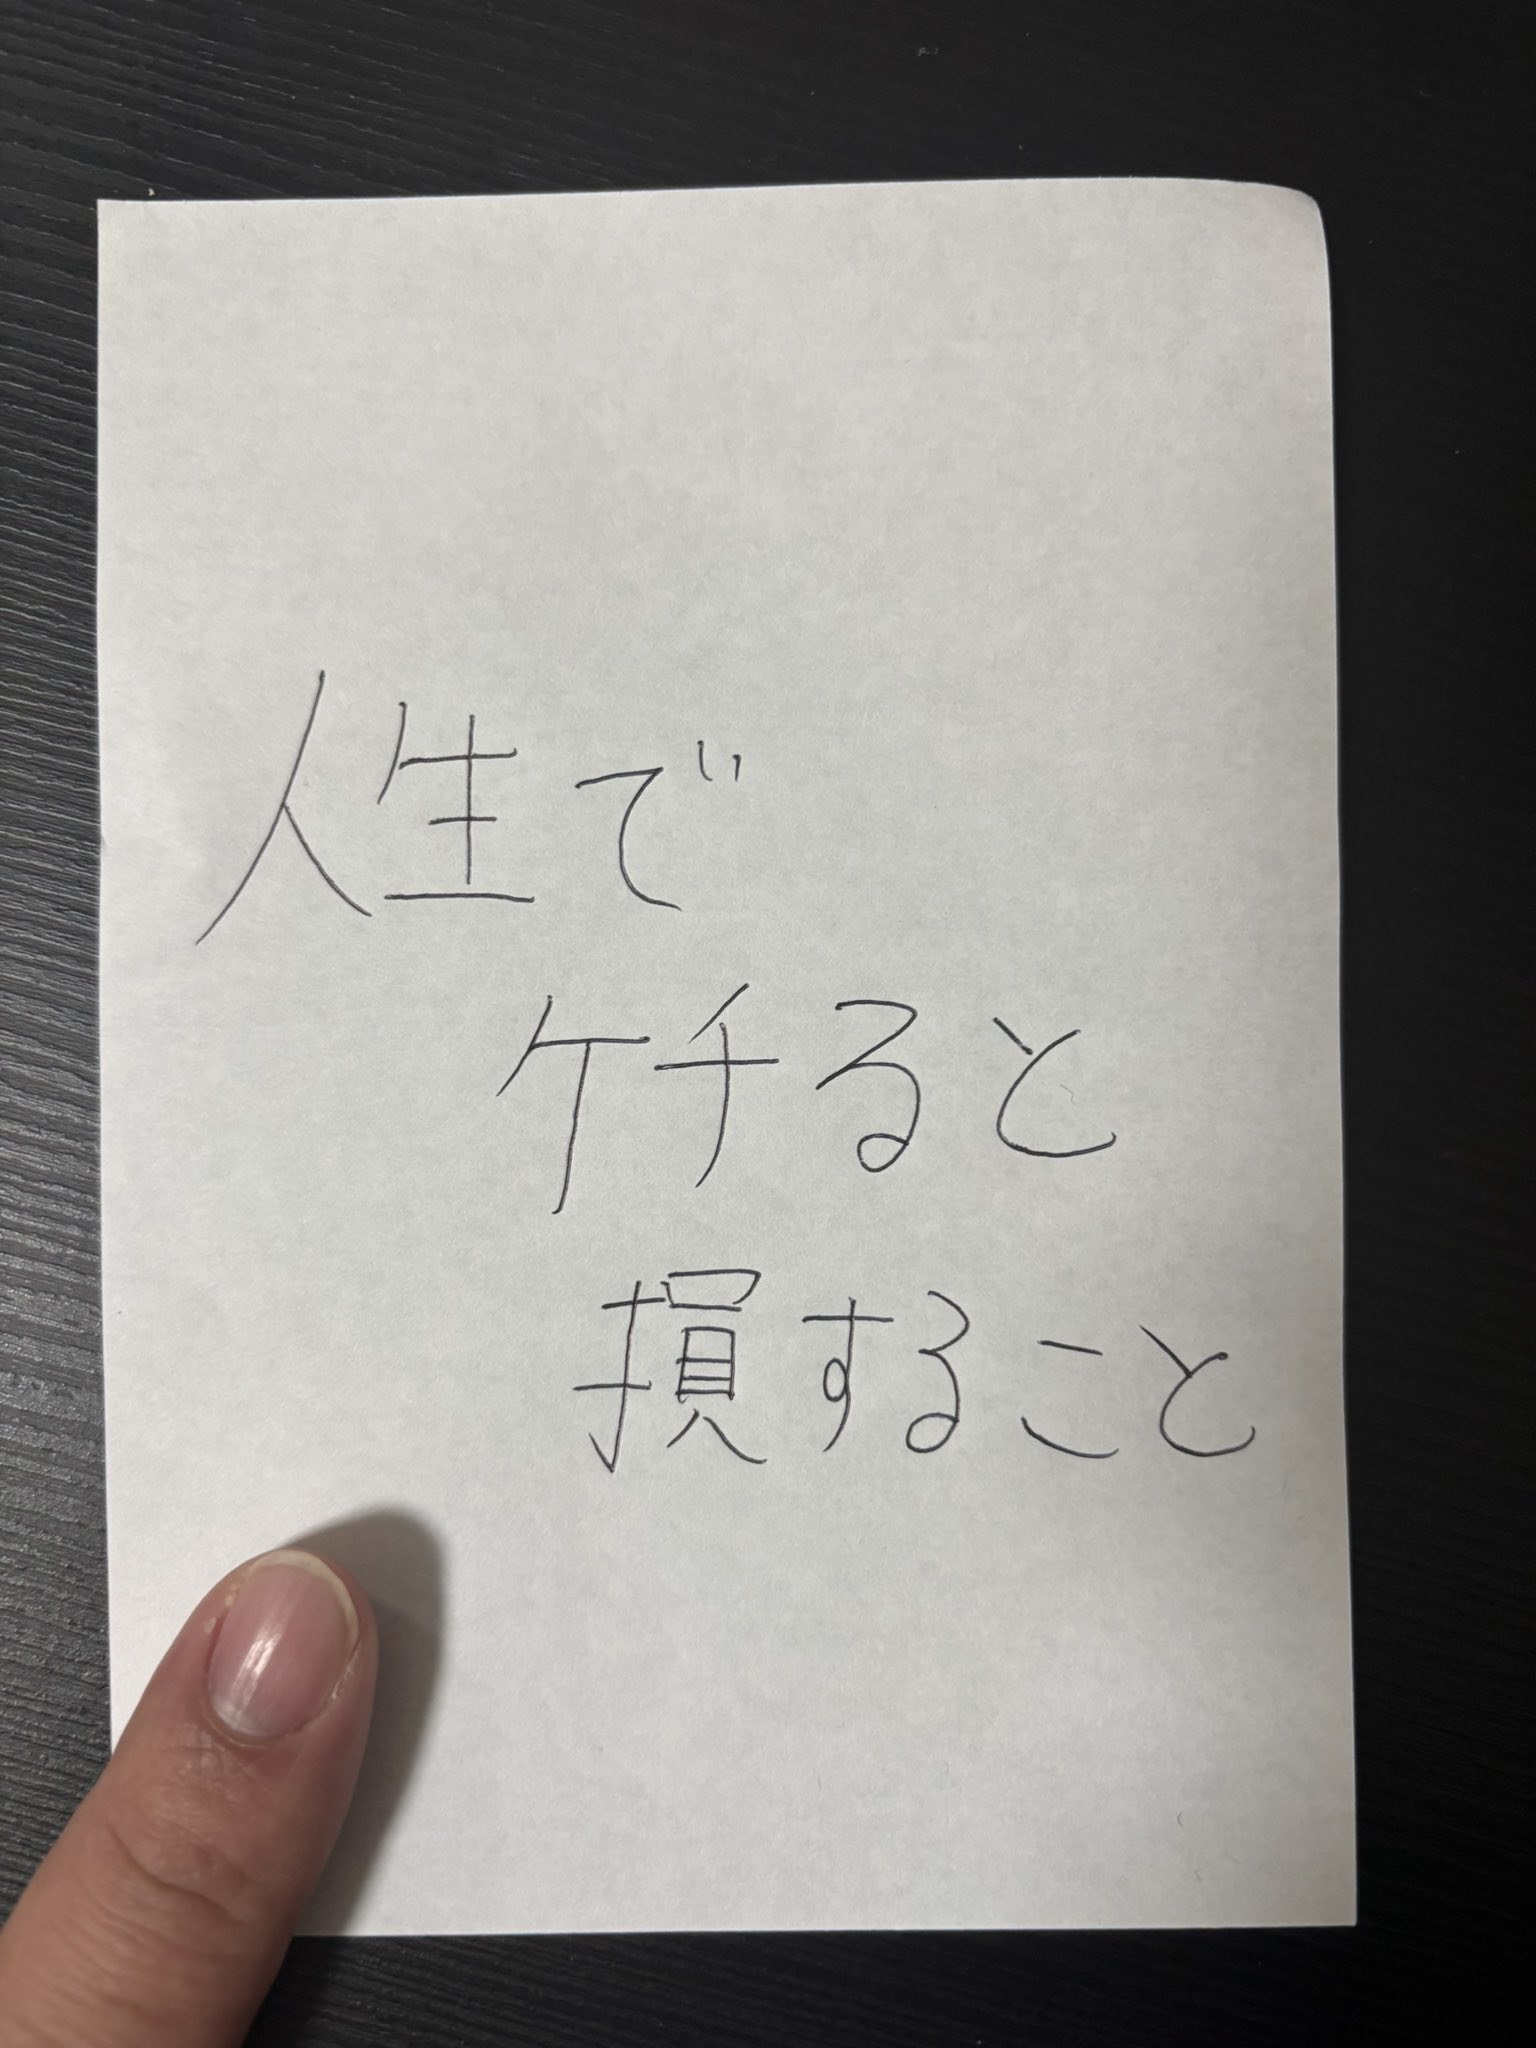 人生で
ケチると
損すること